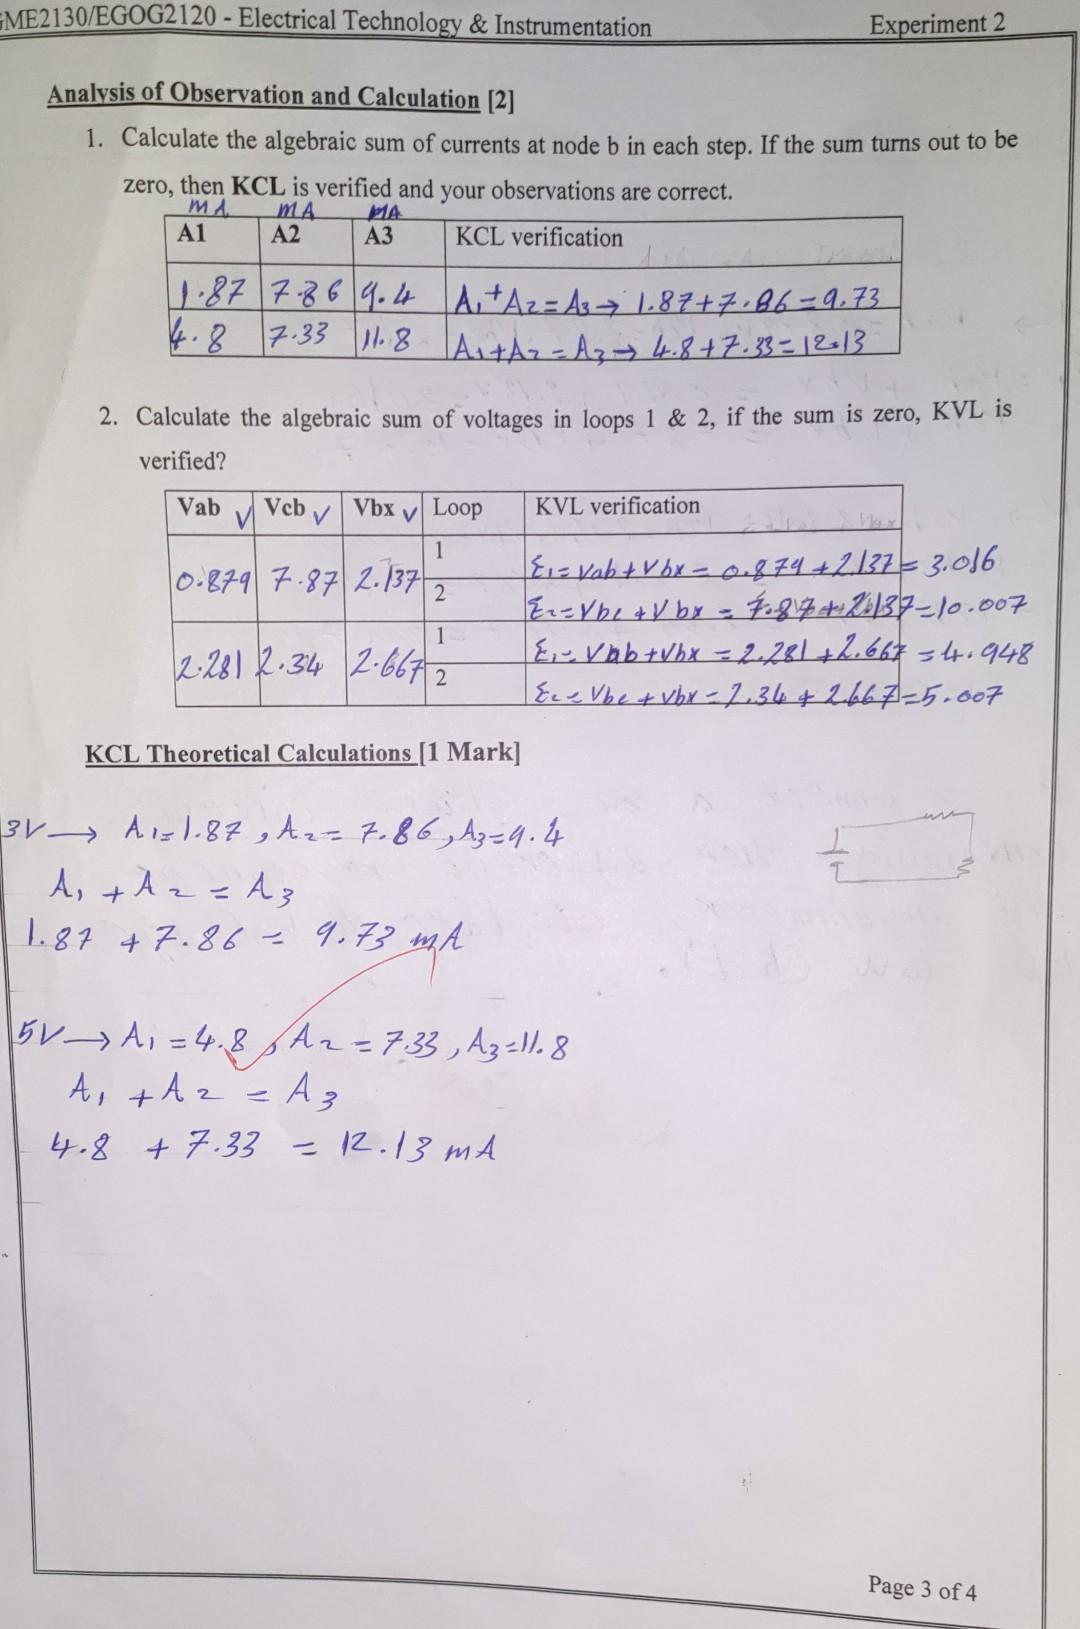 GME2130/EGOG2120 - Electrical Technology & Instrumentation Experiment 2
Analysis of Observation and Calculation [2]
1. Calculate the algebraic sum of currents at node b in each step. If the sum turns out to be
zero, then KCL is verified and your observations are correct.
mA mA mA
A1 A2 A3 KCL verification
1.87 7.86 9.4 A1+A2=A3→ 1.87+7.86=9.73
4.8 7.33 11.8 A1+A2=A3→ 4.8+7.33=12.13
2. Calculate the algebraic sum of voltages in loops 1 & 2, if the sum is zero, KVL is
verified?
Vab V Vcb V Vbx V Loop KVL verification
0.879 7.87 2.137 1 E1=Vab+Vbx=0.879+2.137=3.016
2 E2=Vbc+Vbx=7.87+2.137=10.007
2.281 2.34 2.667 1 E1=Vab+Vbx=2.281+2.667=4.948
2 E2=Vbc+Vbx=2.34+2.667=5.007
KCL Theoretical Calculations [1 Mark]
3V→ A1=1.87, A2=7.86, A3=9.4
A1+A2=A3
1.87+7.86=9.73 mA
5V→ A1=4.8, A2=7.33, A3=11.8
A1+A2=A3
4.8+7.33=12.13 mA
Page 3 of 4